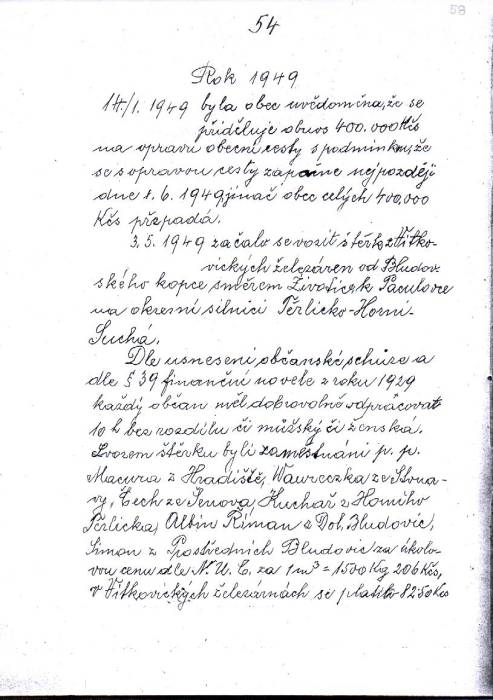 58
54
Rok 1949
14./1. 1949 byla obec uvědoměna, že se
přiděluje obnos 400.000 Kčs
na opravu obecní cesty s podmínkou, že
se s opravou cesty započne nejpozději
dne 1. 6. 1949, jinač obec celých 400,000
Kčs přepadá.
3. 5. 1949 začalo se vozit štěrk z Vítko-
vických železáren od Bludov-
ského kopce směrem Životice k Paculovce
na okresní silnici Těrlicko-Horní-
Suchá.
Dle usnesení občanské schůze a
dle § 39 finanční novele z roku 1929
každý občan měl dobrovolně odpracovat
10 h bez rozdílu či mužský či ženská.
Svozem štěrku byli zaměstnáni p. p.
Macura z Hradiště, Wawreczka ze Stona-
vy, Čech ze Šenova, Kuchař z Horního
Těrlicka, Albín Říman z Dol. Bludovic,
Šiman z Prostředních Bludovic za úkolo-
vou cenu dle N. U. C. za 1 m³ = 1500 Kg 206 Kčs,
v Vítkovických železárnách se platilo 82.50 Kčs